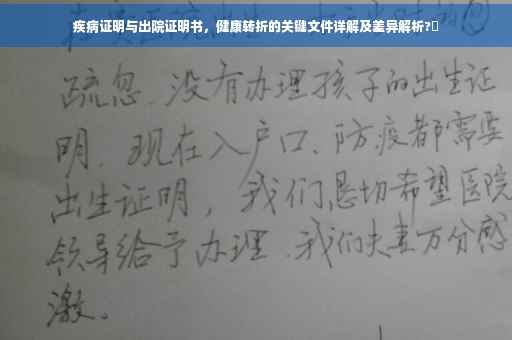 疾病证明与出院证明书，健康转折的关键文件详解及差异解析?
疏忽、没有办理孩子的出生证
明、现在入户口、防疫都需要
出生证明，我们恳切希望医院
领导给予办理、我们夫妻万分感
激。